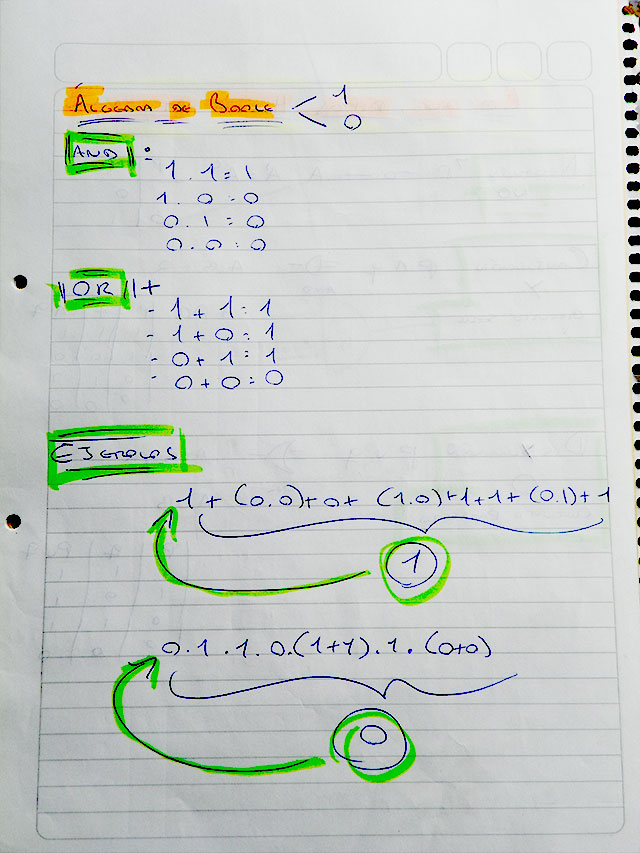 Álgebra de Boole < 1
0
AND :
1 . 1 = 1
1 . 0 = 0
0 . 1 = 0
0 . 0 = 0
OR +
- 1 + 1 = 1
- 1 + 0 = 1
- 0 + 1 = 1
- 0 + 0 = 0
1 + (0.0) + 0 + (1.0) + 1 + 1 + (0.1) + 1
1
0 . 1 . 1 . 0 . (1+1) . 1 . (0+0)
0